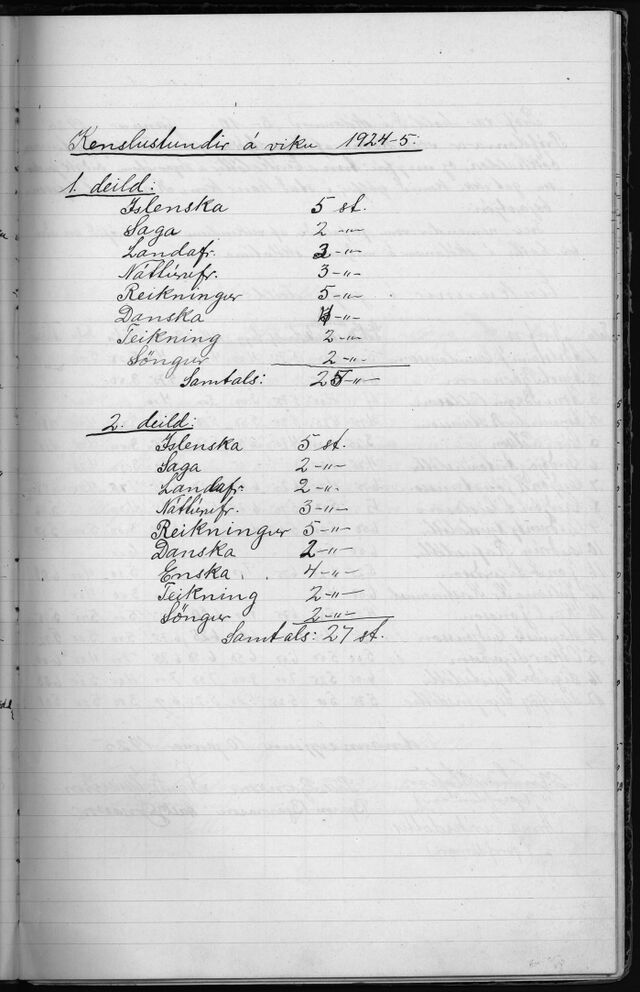 Kenslustundir á viku 1924-5:
1. deild:
Íslenska 5 st.
Saga 2 -"-
Landafr. 3 -"-
Náttúrufr. 3 -"-
Reikningur 5 -"-
Danska 4 -"-
Teikning 2 -"-
Söngur 2 -"-
Samtals: 25 -"-
2. deild:
Íslenska 5 st.
Saga 2 -"-
Landafr. 2 -"-
Náttúrufr. 3 -"-
Reikningur 5 -"-
Danska 2 -"-
Enska 4 -"-
Teikning 2 -"-
Söngur 2 -"-
Samtals: 27 st.